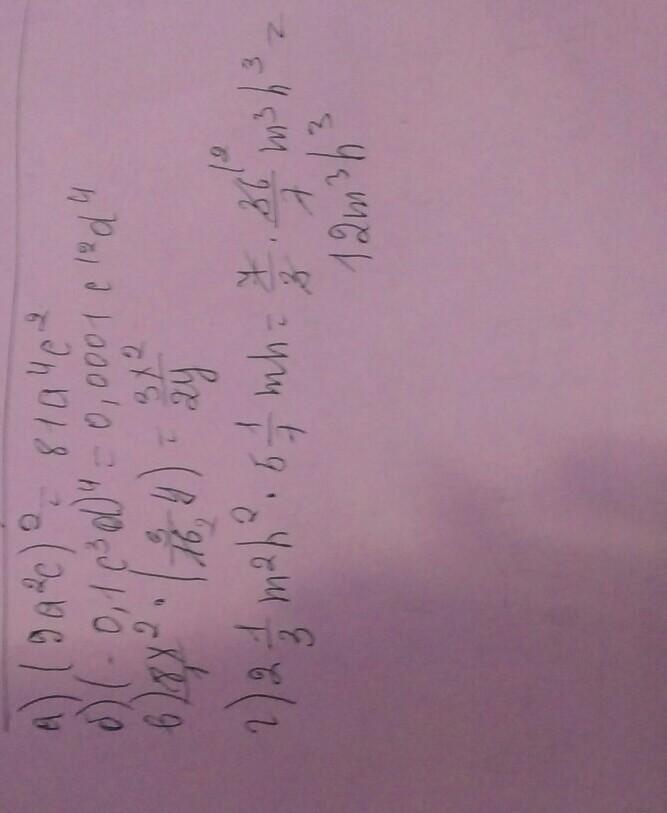 а) (9a²c)² = 81a⁴c²
б) (-0,1c³d)⁴ = 0,0001c¹²d⁴
в) 8x²/1 · (3/16 2 y) = 3x²/2y
г) 2 1/3 m²n² · 5 1/7 mn = 7/3 · 36 12/7 m³n³ =
12m³n³